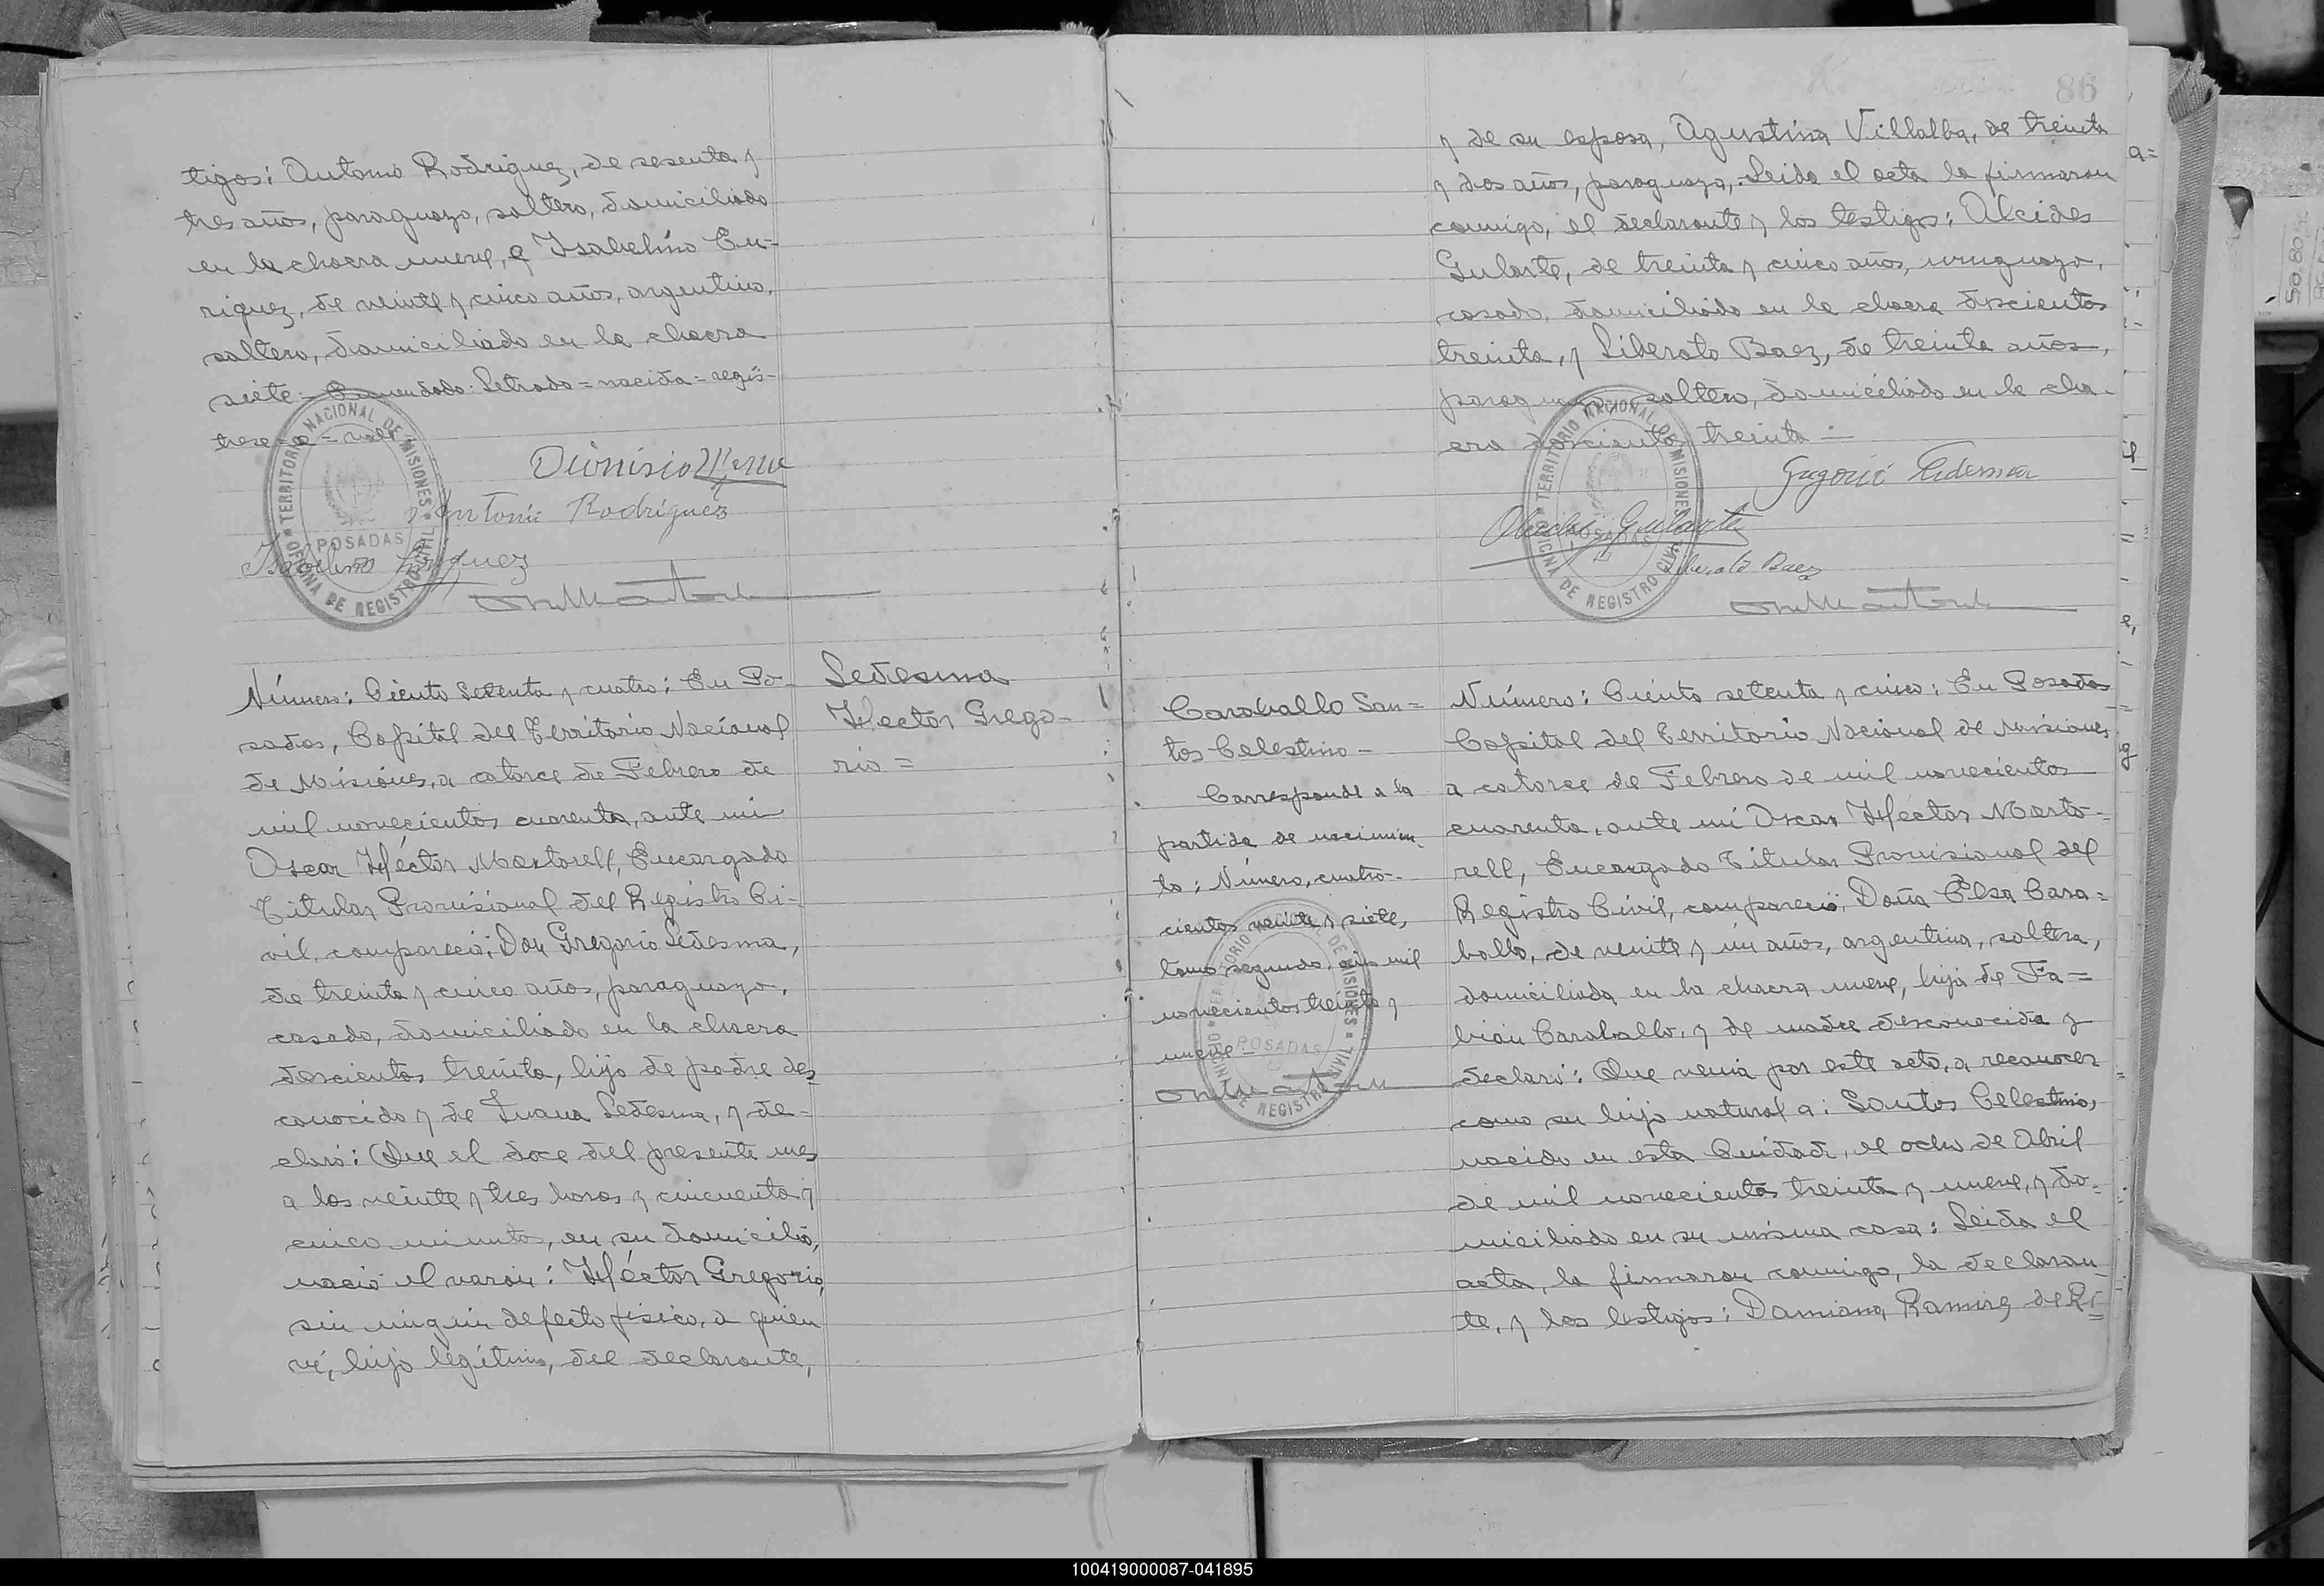 tigos: Antonio Rodriguez, de sesenta y
tres años, paraguayo, soltero, domiciliado
en la chacra nueve, e Ysabelino En-
riquez, de veinte y cinco años, argentino,
soltero, domiciliado en la chacra
siete - Enmendado: Letrado = nacida = regis-
trese = e = vale
Dionisio
Antonio Rodriguez
Número: Ciento setenta y cuatro: En Po-
sadas, Capital del Territorio Nacional
de Misiones, a catorce de Febrero de
mil novecientos cuarenta, ante mi
Oscar Héctor Martorell, Encargado
Titular Provisional del Registro Ci-
vil, compareció: Don Gregorio Ledesma,
de treinta y cinco años, paraguayo,
casado, domiciliado en la chacra
doscientos treinta, hijo de padre des
conocido y de Juana Ledesma, y de-
claró: Que el doce del presente mes
a las veinte y tres horas y cincuenta y
cinco minutos, en su domicilio,
nació el varón: Héctor Gregorio,
sin ningún defecto fisico, a quien
vé, hijo legítimo, del declarante,
Ledesma
Hector Grego-
rio =
86
y de su esposa, Agustina Villalba, de treinta
y dos años, paraguaya. Leida el acta la firmaron
conmigo, el declarante y los testigos: Alcides
Gularte, de treinta y cinco años, uruguayo,
casado, domiciliado en la chacra doscientos
treinta, y Liberato Baez, de treinta años,
paraguayo, soltero, domiciliado en la cha-
cra doscientos treinta -
Gregorio Ledesma
Alcides Gularte
Liberato Baez
Caraballo San=
tos Celestino -
Corresponde a la
partida de nacimien
to: Número, cuatro-
cientos veinte y siete,
tomo segundo, año mil
novecientos treinta y
nueve -
Número: Ciento setenta y cinco: En Posadas
Capital del Territorio Nacional de Misiones
a catorce de Febrero de mil novecientos
cuarenta, ante mi Oscar Héctor Marto-
rell, Encargado Titular Provisional del
Registro Civil, compareció: Doña Elsa Cara=
ballo, de veinte y ún años, argentina, soltera,
domiciliada en la chacra nueve, hija de Fa=
bian Caraballo, y de madre desconocida y
declaró: Que venia por este acto, a reconocer
como su hijo natural a: Santos Celestino,
nacido en esta Ciudad, el ocho de Abril
de mil novecientos treinta y nueve, y do-
miciliado en su misma casa: Leida el
acta, la firmaron conmigo, la declaran-
te, y los testigos: Damiana Ramirez de Ri-
OFICINA DE REGISTRO CIVIL
TERRITORIO NACIONAL DE MISIONES
POSADAS
100419000087-041895